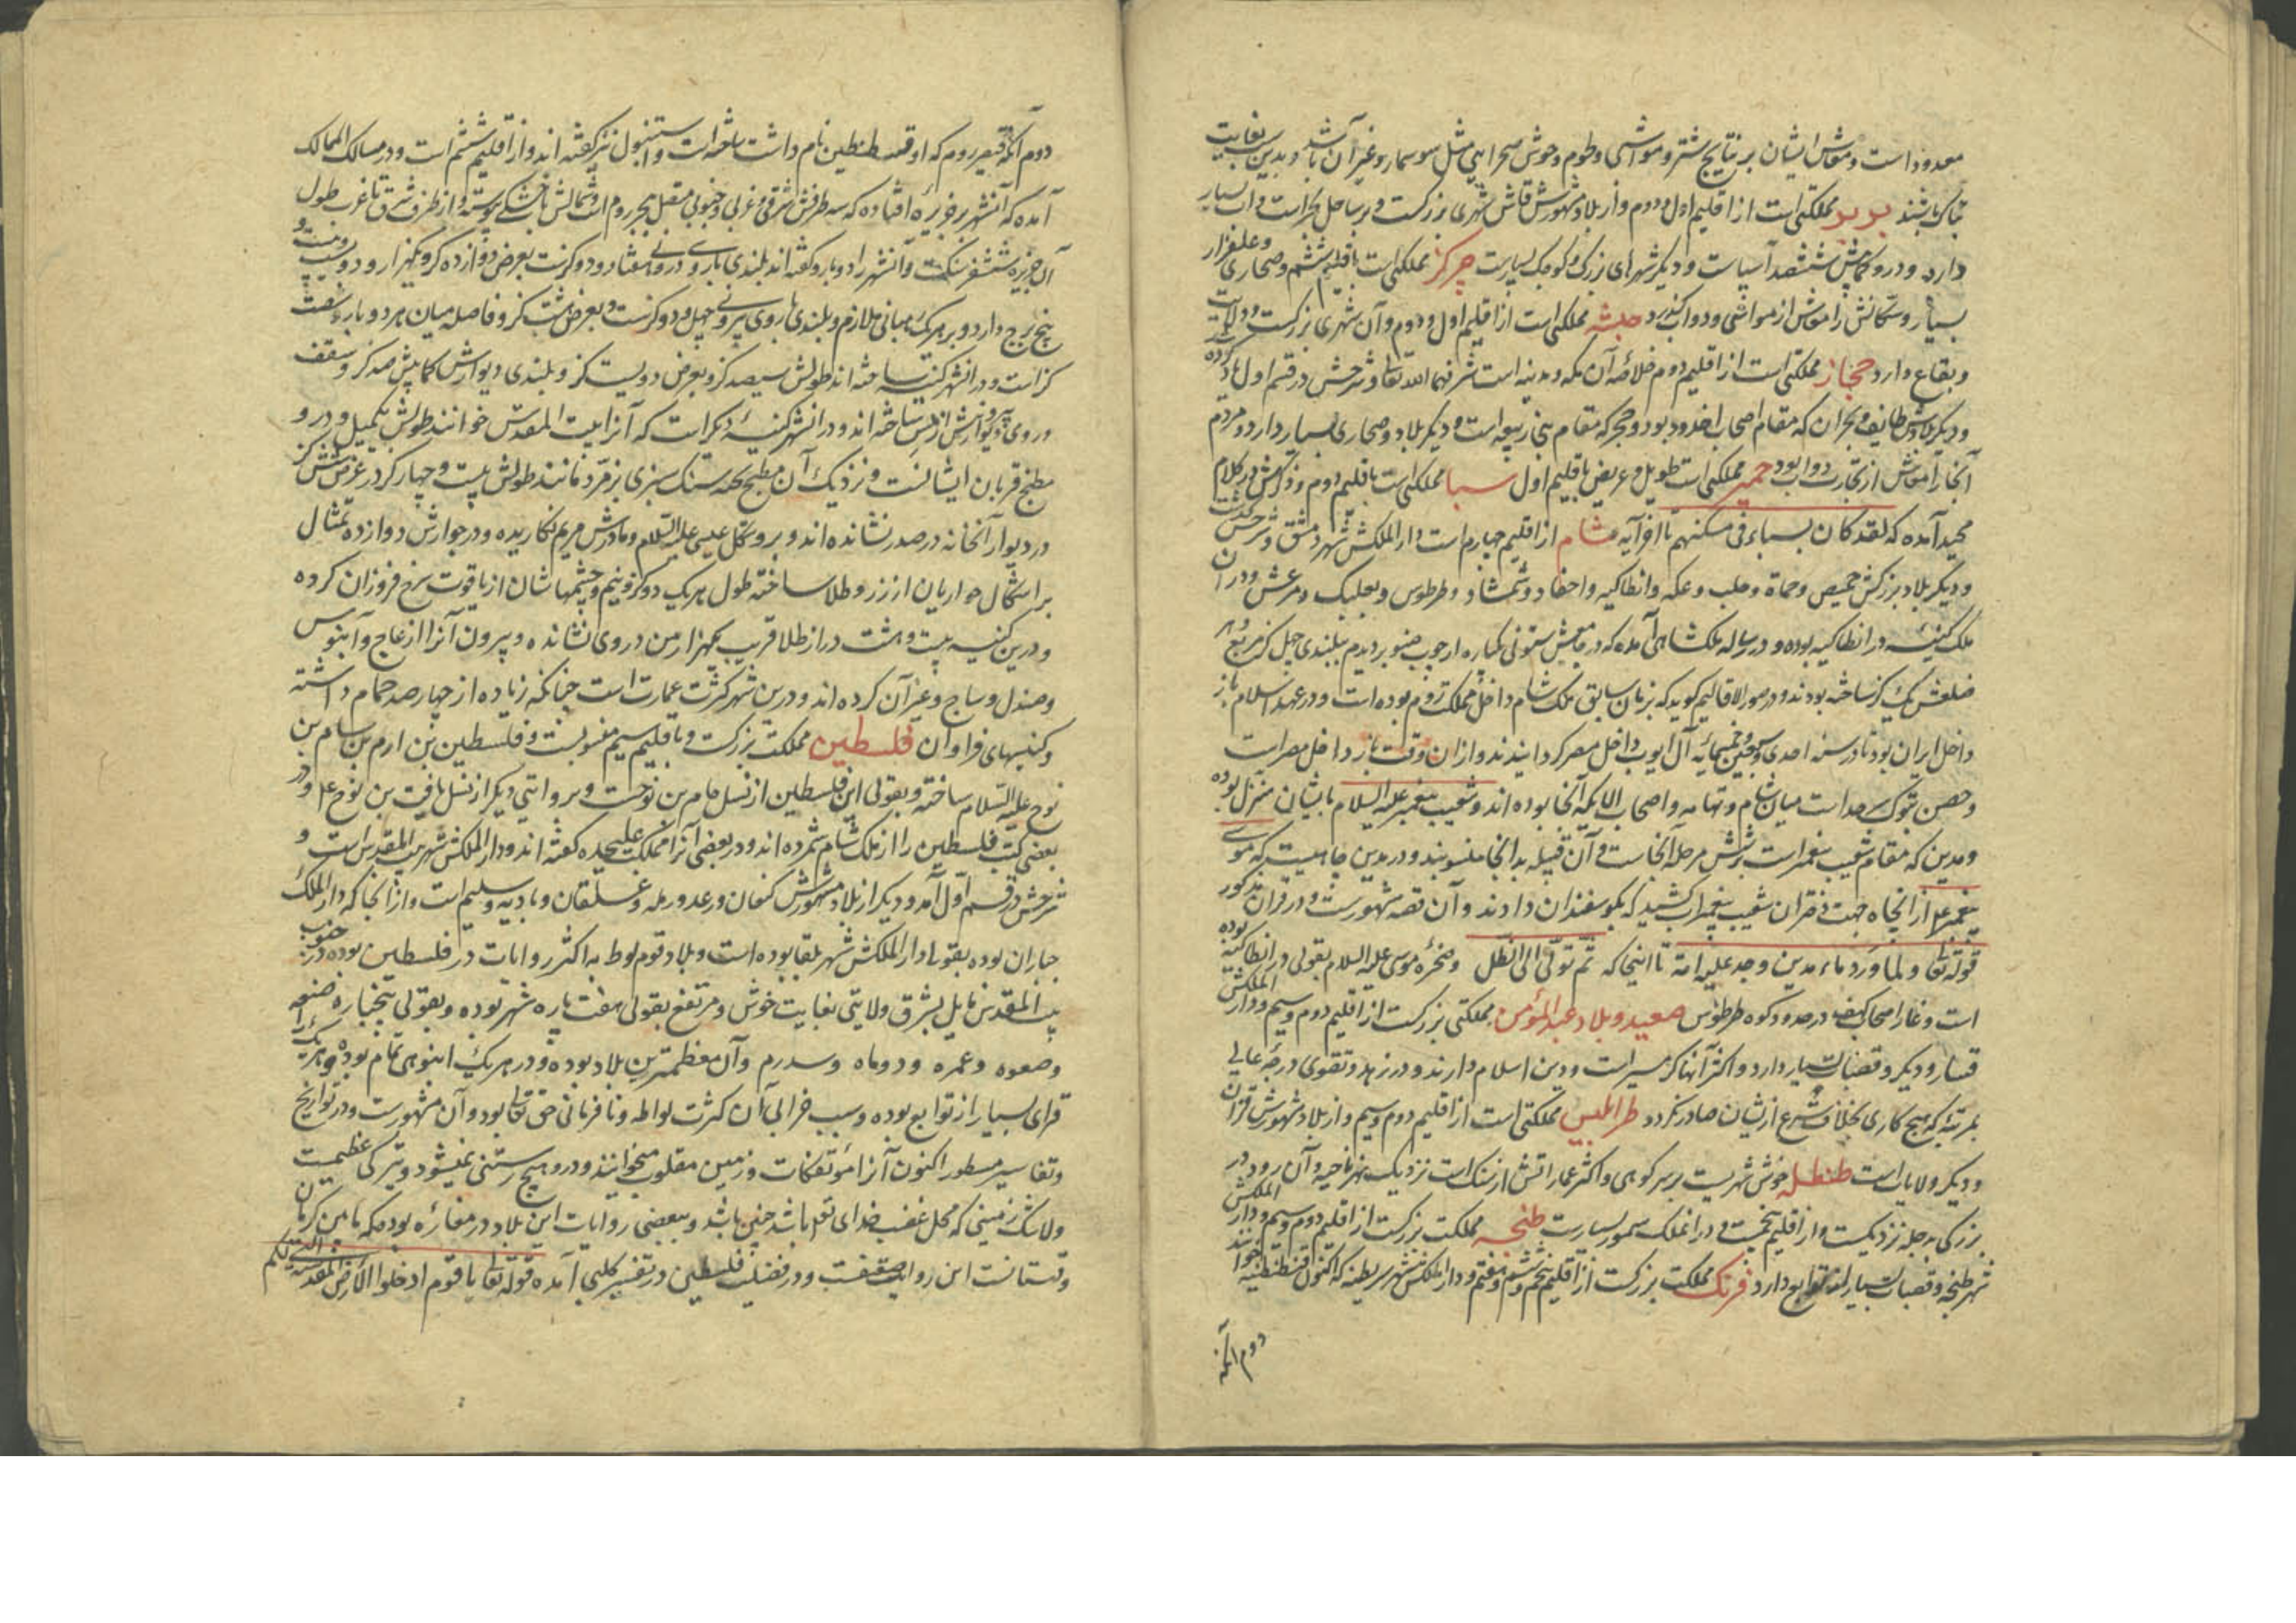 معدود است و معاش ایشان بر نتایج شتر و مواشی و لحوم وحوش صحرایی مثل سوسمار و غیر آن باشد و بدین سبب بغایت
ناپاک باشند بربر مملکتی است از اقلیم اول و دوم و از بلاد مشهورش فاس شهری بزرکست و بر ساحل بحر است و اب بسیار
دارد و درو کمابیش ششصد آسیاست و دیکر شهرهای بزرک و کوچک بسیارست چرکز مملکتی است باقلیم ششم و صحاری و علفزار
بسیار و سکانش را معاش از مواشی و دواب کذرد حبشه مملکتی است از اقلیم اول و دوم و آن شهری بزرکست و ولایت
و بقاع دارد حجاز مملکتی است از اقلیم دوم خلاصهٔ آن مکه و مدینه است شرفهما الله تعالی و شرحش در قسم اول یاد کرده
و دیکر بلادش طایف و نجران که مقام اصحاب اخدود بود و حجر که مقام بنی ربیعه است و دیکر بلاد و صحاری بسیار دارد و مردم
آنجا را معاش از تجارت و دواب بود حمیر مملکتی است طویل و عریض باقلیم اول سبا مملکتی است باقلیم دوم و ذکرش در کلام
مجید آمده که لقد کان لسباء فی مسکنهم تا آخر آیه شام از اقلیم چهارم است دار الملکش شهر دمشق و شرحش کذشت
و دیکر بلاد بزرکش حمیص و حماة و حلب و عکه و انطاکیه و شمشاد و طرطوس و بعلبک و مرعش و در آن
ملک کنیسهٔ در انطاکیه بوده و در رساله ملکشاهی آمده که در جامعش ستونی یکباره از چوب صنوبر دیدم ببلندی چهل کز مربع هر
ضلعش یک کز ساخته بودند و در صور الاقالیم کوید که بزمان سابق ملک شام داخل مملکت روم بوده است و در عهد اسلام باز
داخل ایران بود تا در سنه احدی و سبعین و خمسمایه آل ایوب داخل مصر کردانیدند و از ان وقت باز داخل مصر است
و حصن تبوک سرحد است میان شام و تهامه و اصحاب الایکه آنجا بوده اند و شعیب پیغمبر علیه السلام بایشان منزل بوده
و مدین که مقام شعیب پیغمبر است بر شش مرحله آنجاست و آن قبیله بدانجا منسوبند و در مدین چاهیست که موسی
پیغمبر از انچاه جهت دختران شعیب پیغمبر آب کشید که بکوسفندان دادند و آن قصه مشهورست و در قرآن مذکور
قوله تعالی و لما ورد ماء مدین وجد علیه امة تا اینجا که ثم تولی الی الظل و صخره موسی علیه السلام بقولی در انطاکیه بوده
است و غار اصحاب کهف در حدود کوه طرطوس صعید و بلاد عبد المؤمن مملکتی بزرکست از اقلیم دوم و سیم و دار الملکش
و دیکر و قصبات بسیار دارد و اکثر آنها کرمسیر است و دین اسلام دارند و در زهد و تقوی درجهٔ عالی
بمرتبهٔ که هیچ کاری بخلاف شرع از یشان صادر نکردد طرابلس مملکتی است از اقلیم دوم و سیم و از بلاد مشهورش
و دیکر ولایات است طنطله خوش شهریست بر سر کوهی و اکثر عماراتش از سنک است نزدیک نهر تاجه و آن رود در
بزرکی به دجله نزدیکست و از اقلیم پنجمست و در انملک سمور بسیارست طنجه مملکت بزرکست از اقلیم دوم و سیم و دار الملکش
شهر طنجه و قصبات بسیار از توابع دارد فرنک مملکت بزرکست از اقلیم پنجم و ششم و هفتم و دار الملکش شهر بزیطنه که اکنون قسطنطنیه خوانند
دوم آنکه
دوم آنکه قیصر روم که او قسطنطین نام داشت ساخته است و استنبول نیز کفته اند و از اقلیم ششم است و در مسالک الممالک
آمده که آنشهر بر جزیرهٔ افتاده که سه طرفش شرقی و غربی و جنوبی متصل ببحر روم است و شمالش با خشکی پیوسته و از طرف شرق تا غرب طول
آن جزیره شش فرسنکست و آنشهر را دو بارو کفته اند بلندی باروی درونی هفتاد و دو کزست بعرض دوازده کز و یکهزار و دویست و بیست و
پنج برج دارد و بر هر یک رهبانی ملازم و بلندی باروی بیرونی چهل و دو کزست و بعرض هشت کز و فاصله میان هر دو بارو شصت
کز است و در انشهر کنیسهٔ ساخته اند طولش سیصد کز و بعرض دویست کز و بلندی دیوارش کمابیش صد کز و سقف
و روی و دیوارش از مس ساخته اند و در انشهر کنیسهٔ دیکر است که آنرا بیت المقدس خوانند طولش یکمیل و درو
مطبخ قربان ایشانست و نزدیک آن مطبخ تخته سنک سبزی بزمرد مانند طولش بیست و چهار کز در عرض شش کز
در دیوار آنخانه در صدر نشانده اند و برو شکل عیسی علیه السلام و مادرش مریم نکاریده و در جوارش دوازده تمثال
بر اشکال حواریان از زر و طلا ساخته طول هر یک دو کز و نیم و چشمهاشان از یاقوت سرخ فروزان کرده
و درین کنیسه بیست و هشت در از طلا قریب یکهزار من در وی نشانده و بیرون آنرا از عاج و آبنوس
و صندل و ساج و غیر آن کرده اند و درین شهر کثرت عمارت است چنانکه زیاده از چهارصد حمام داشته
و کنیسهای فراوان فلسطین مملکت بزرکست و باقلیم سیم منسوبست و فلسطین بن ارم بن سام بن
نوح علیه السلام ساخته و بقولی این فلسطین از نسل حام بن نوحست و بروایتی دیکر از نسل یافث بن نوح ع م و در
بعضی کتب فلسطین را از ملک شام شمرده اند و در بعضی آنرا مملکت علیحده کفته اند و دار الملکش شهر بیت المقدس است و
شرحش در قسم اول آمد و دیکر از بلاد مشهورش کنعان و رمله و عسقلان و است و از آنجا که دار الملک
جباران بوده بقولی دار الملکش شهر بلقا بوده است و بلاد قوم لوط به اکثر روایات در فلسطین بوده در جنوب
بیت المقدس مایل بشرق ولایتی بغایت خوش و مرتفع بقولی هفت پاره شهر بوده و بقولی پنج پاره
و صعوه و عمره و دوماه و سدوم و آن معظمترین بلاد بوده و در هر یک انبوهی تمام بوده و هر یک را
قرای بسیار از توابع بوده و سبب خرابی آن کثرت لواطه و نافرمانی حق تعالی بود و آن مشهورست و در تواریخ
و تفاسیر مسطور اکنون آنرا مؤتفکات و زمین مقلوب میخوانند و درو هیچ رستنی نمیشود و تیرکی عظیمست
و لاشک زمینی که محل غضب خدای تعالی باشد چنین باشد و ببعضی روایات این بلاد در مغازهٔ بوده که مابین کرمان
و قهستانست این روایت ضعیفست و در فضیلت فلسطین در تفسیر کلبی آمده قوله تعالی یا قوم ادخلوا الارض المقدسة التی کتب لکم